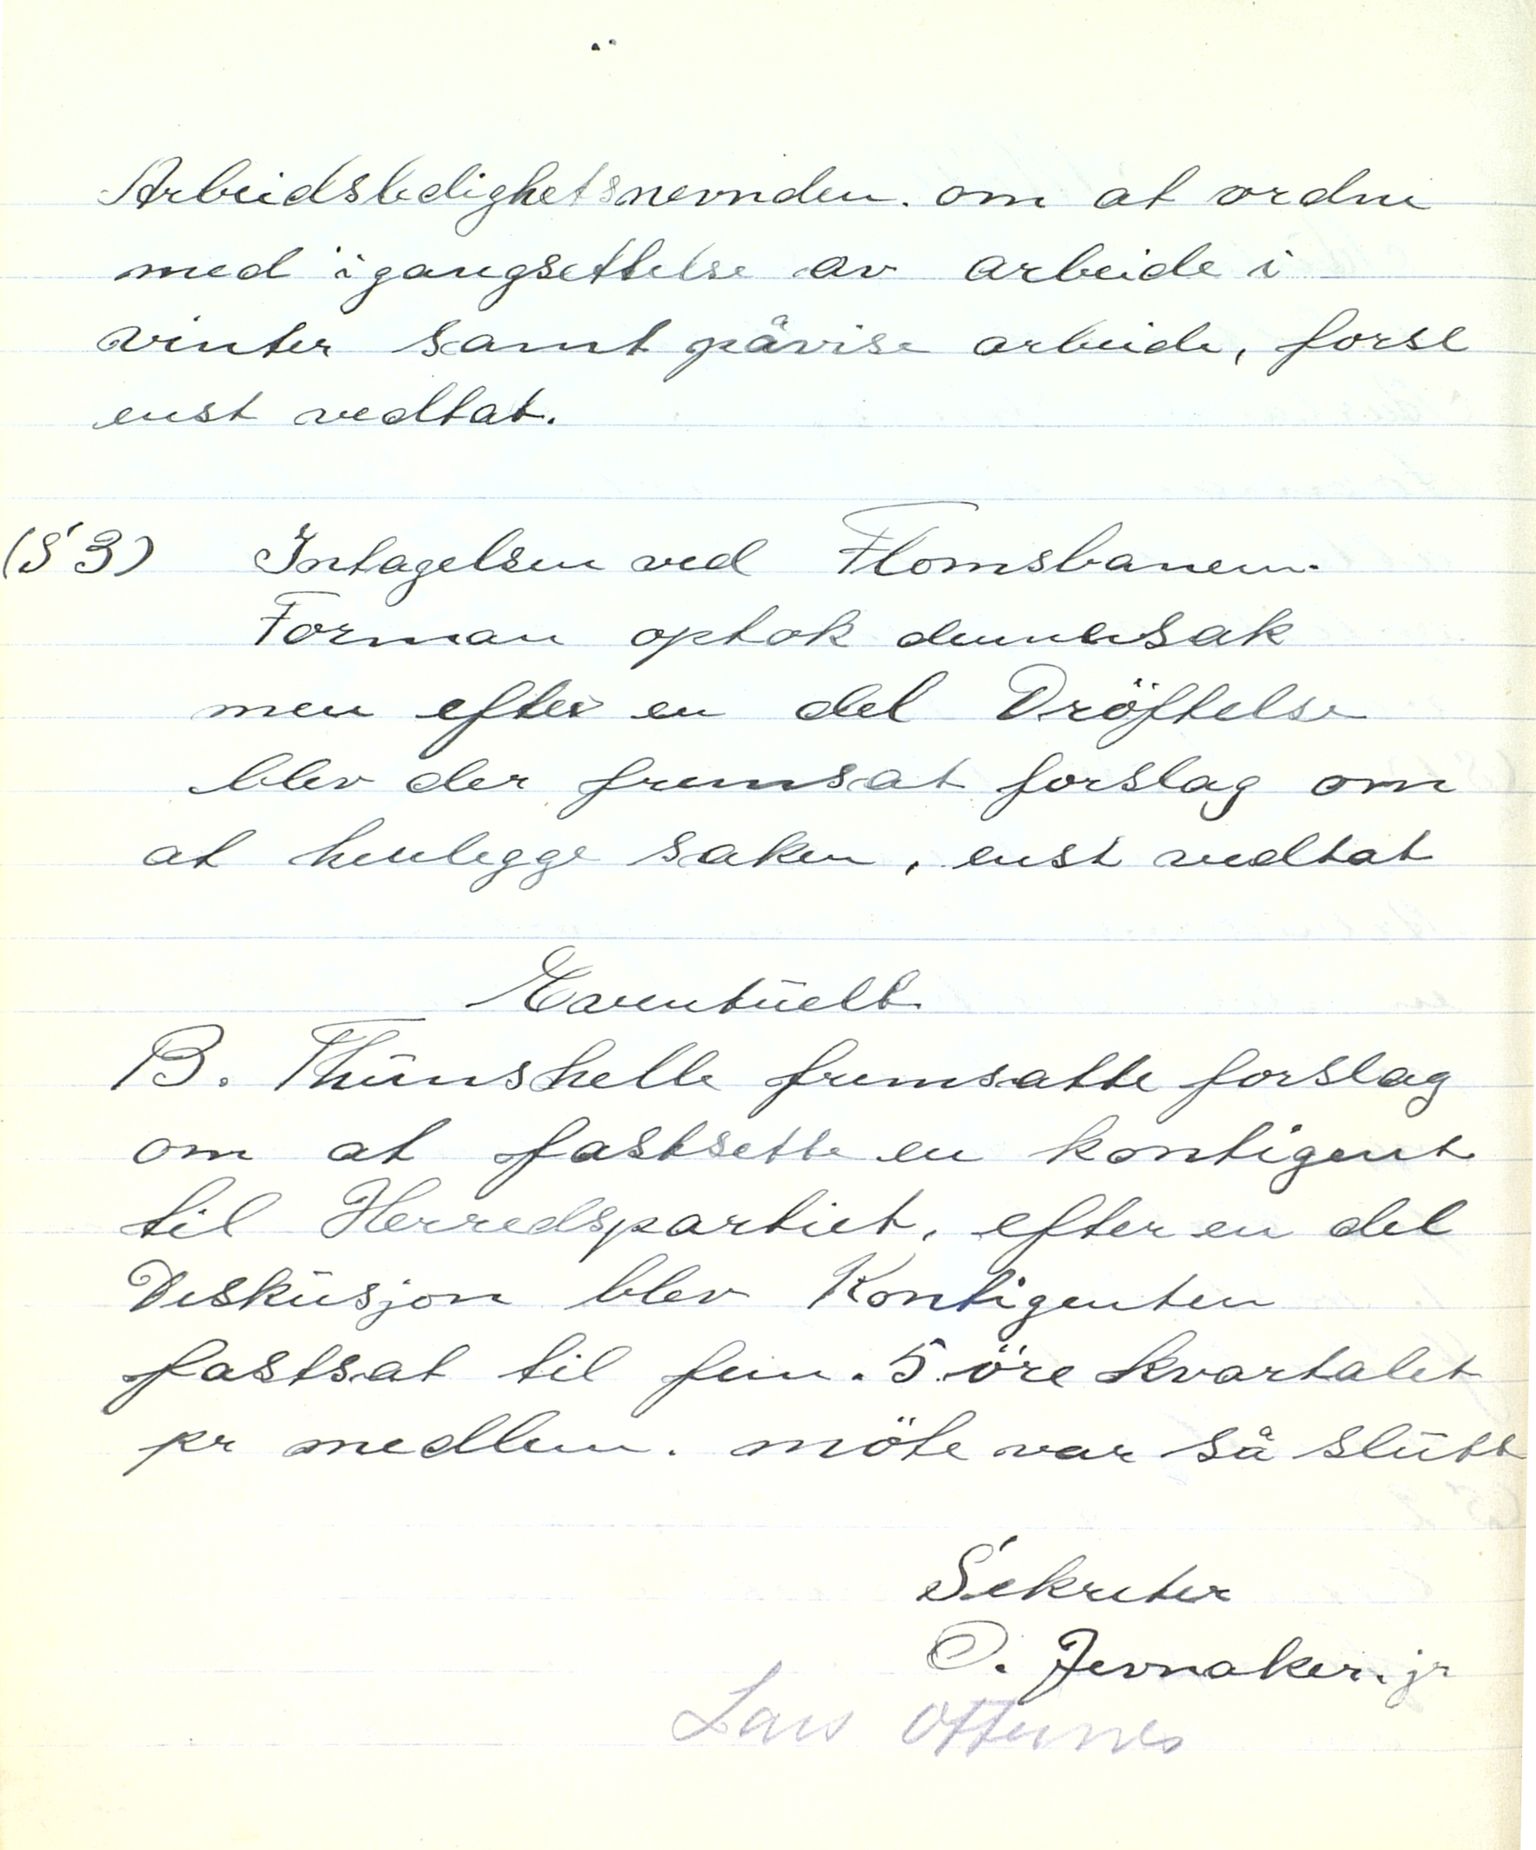 Arbeidsledighetsnevnden. om at ordne
med igangsettelse av arbeide i
vinter samt påvise arbeide, forsl
enst vedtat.
(§ 3) Intagelsen ved Flomsbanen.
Forman optok dennesak
men efter en del Dröftelse
blev der fremsat forslag om
at henlegge saken, enst vedtat
Eventuelt
B. Thunshelle fremsatte forslag
om at fastsette en kontigent
til Herredspartiet, efter en del
Diskusjon blev Kontigenten
fastsat til fem. 5 öre kvartalet
pr medlem. möte var så slutt
Sekreter
O. Jevnaker. jr
Lars Otternes